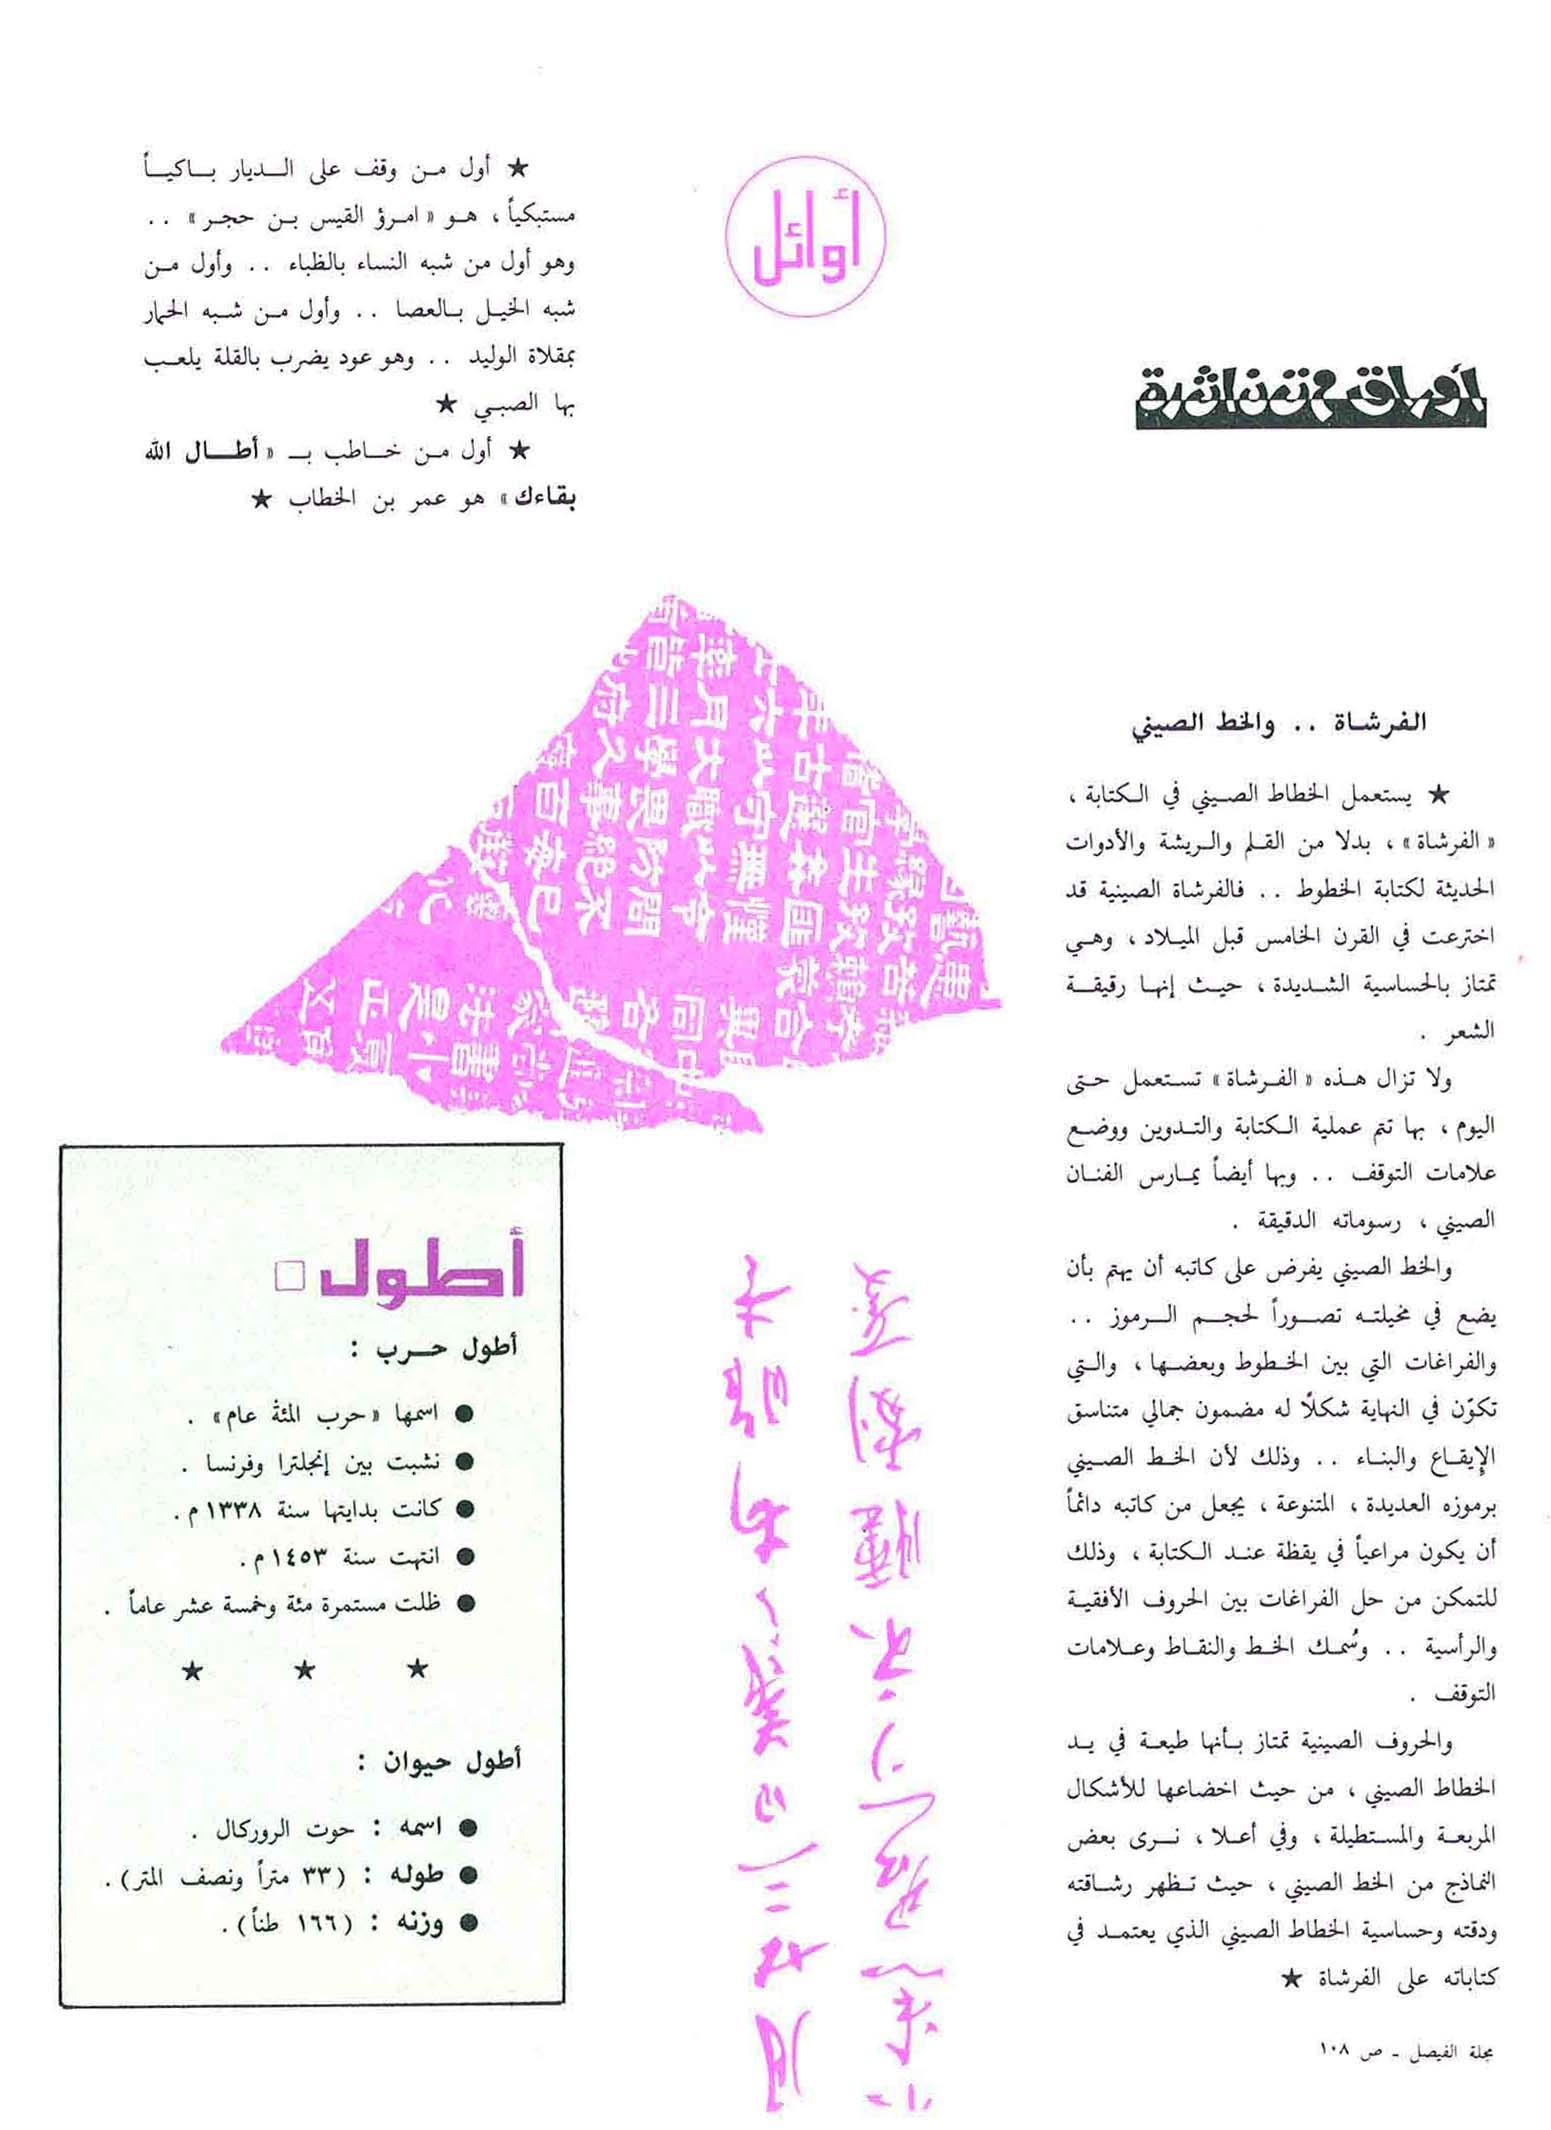 أوراق متناثرة
الفرشاة .. والخط الصيني
★ يستعمل الخطاط الصيني في الكتابة ،
« الفرشاة » ، بدلا من القلم والريشة والأدوات
الحديثة لكتابة الخطوط .. فالفرشاة الصينية قد
اخترعت في القرن الخامس قبل الميلاد ، وهي
تمتاز بالحساسية الشديدة ، حيث إنها رقيقة
الشعر .
ولا تزال هذه « الفرشاة » تستعمل حتى
اليوم ، بها تتم عملية الكتابة والتدوين ووضع
علامات التوقف .. وبها أيضاً يمارس الفنان
الصيني ، رسوماته الدقيقة .
والخط الصيني يفرض على كاتبه أن يهتم بأن
يضع في مخيلته تصوراً لحجم الرموز ..
والفراغات التي بين الخطوط وبعضها ، والتي
تكوّن في النهاية شكلًا له مضمون جمالي متناسق
الإيقاع والبناء .. وذلك لأن الخط الصيني
برموزه العديدة ، المتنوعة ، يجعل من كاتبه دائماً
أن يكون مراعياً في يقظة عند الكتابة ، وذلك
للتمكن من حل الفراغات بين الحروف الأفقية
والرأسية .. وسُمك الخط والنقاط وعلامات
التوقف .
والحروف الصينية تمتاز بأنها طيعة في يد
الخطاط الصيني ، من حيث اخضاعها للأشكال
المربعة والمستطيلة ، وفي أعلا ، نرى بعض
النماذج من الخط الصيني ، حيث تظهر رشاقته
ودقته وحساسية الخطاط الصيني الذي يعتمد في
كتاباته على الفرشاة ★
أوائل
★ أول من وقف على الديار باكياً
مستبكياً ، هو « امرؤ القيس بن حجر » ..
وهو أول من شبه النساء بالظباء .. وأول من
شبه الخيل بالعصا .. وأول من شبه الحمار
بمقلاة الوليد .. وهو عود يضرب بالقلة يلعب
بها الصبي ★
★ أول من خاطب بـ « أطال الله
بقاءك » هو عمر بن الخطاب ★
أطول □
أطول حرب :
● اسمها « حرب المئة عام » .
● نشبت بين إنجلترا وفرنسا .
● كانت بدايتها سنة ١٣٣٨ م .
● انتهت سنة ١٤٥٣ م .
● ظلت مستمرة مئة وخمسة عشر عاماً .
★ ★ ★
أطول حيوان :
● اسمه : حوت الروركال .
● طوله : (٣٣ متراً ونصف المتر) .
● وزنه : (١٦٦ طناً) .
مجلة الفيصل ـ ص ١٠٨